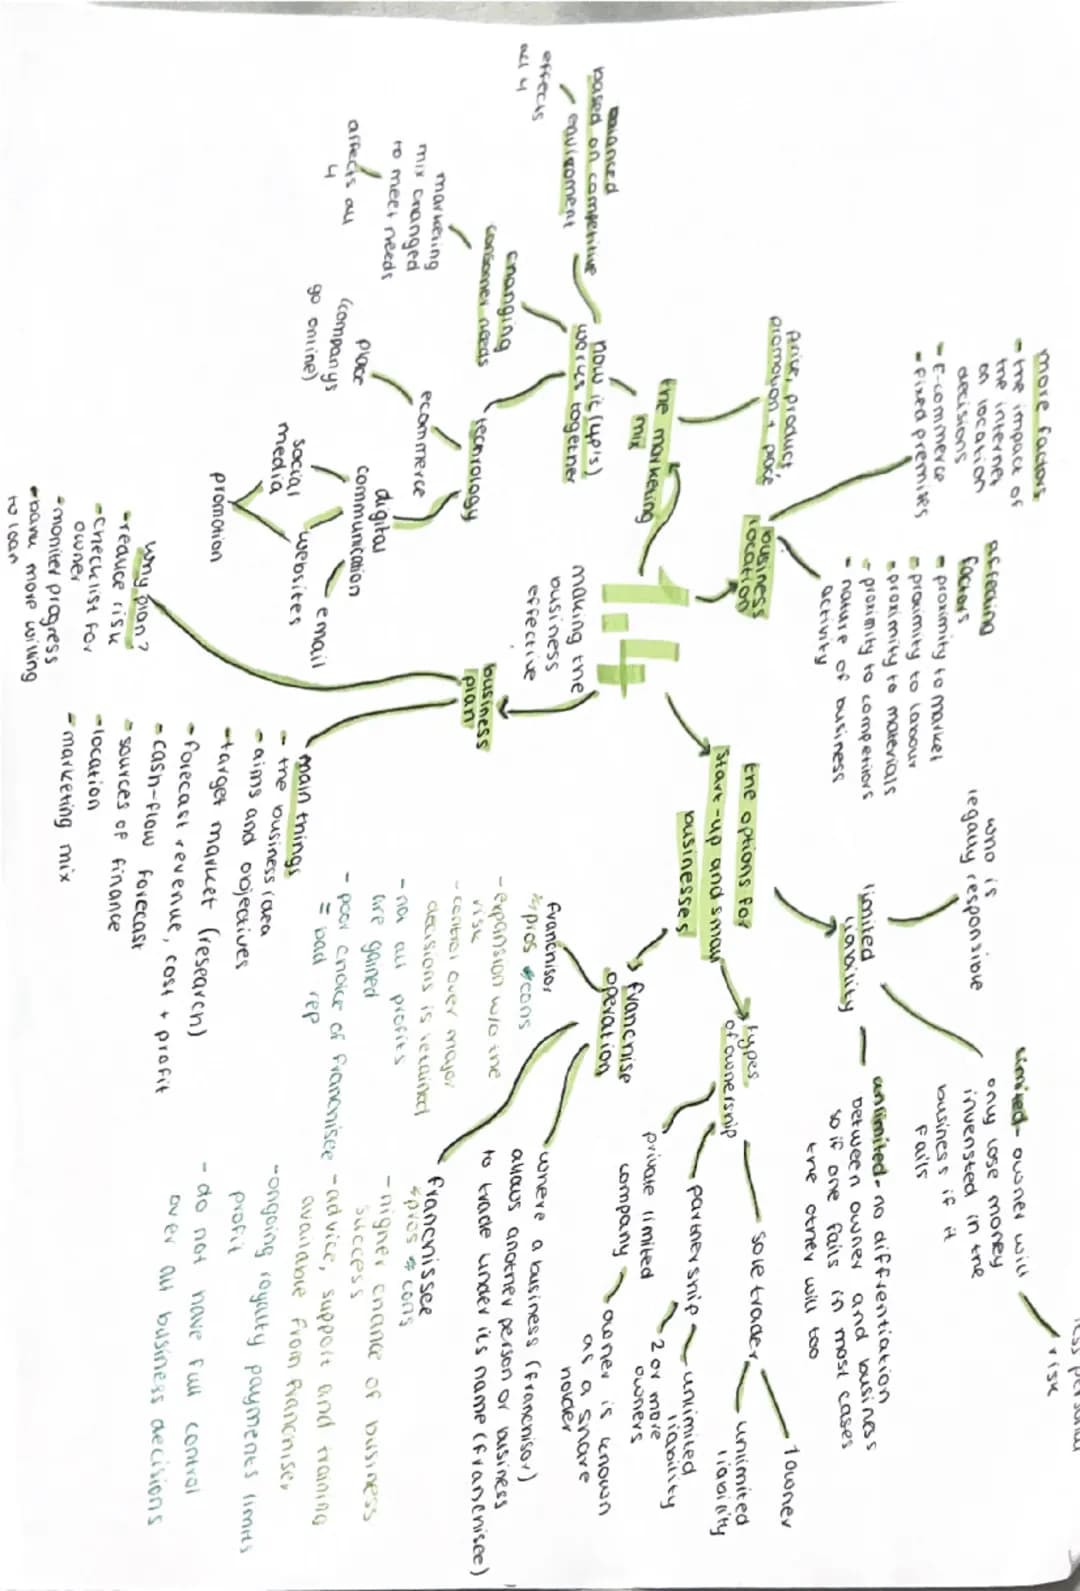 1.4
making the
business
effective
the options for
start-up and small
businesses
limited
liability
who is
legally responsible
limited- owner will
ony lose money
invensted in the
business if it
fails
risk
unlimited- no diffrentiation
between owner and business
so if one fails in most cases
the other will too
types
of ownership
sole trader
1 owner
unlimited
liability
partnership
unlimited
liability
2 or more
owners
private limited
company
owner is known
as a share
holder
franchise
operation
where a business (franchisor)
allows another person or business
to trade under its name (franchisee)
franchisor
pros cons
- expansion w/o the
risk
- control over major
decisions is retained
- not all profits
are gained
- poor choice of franchisee
= bad rep
franchissee
pros cons
- higher chance of business
success
- advice, support and training
available from franchiser
- ongoing royalty payments limits
profit
- do not have full control
over all business decisions
business
plan
main things
- the business idea
- aims and objectives
- target market (research)
- forecast revenue, cost + profit
- cash-flow forecast
- sources of finance
- location
- marketing mix
why plan?
- reduce risk
- checklist for
owner
- moniter progress
- bank more willing
to loan
business
location
affecting
factors
- proximity to market
- proximity to labour
- proximity to materials
- proximity to competitors
- nature of business
activity
more factors
- the impact of
the internet
on location
decisions
- E-commerce
- fixed premises
the marketing
mix
price, product,
promotion + place
how it (4p's)
works together
balanced
based on competitive
enviroment
effects
all 4
changing
consomer needs
marketing
mix changed
to meet needs
affects all
4
technology
ecommerce
place
(companys
go online)
digital
communication
social
media
websites
email
promotion